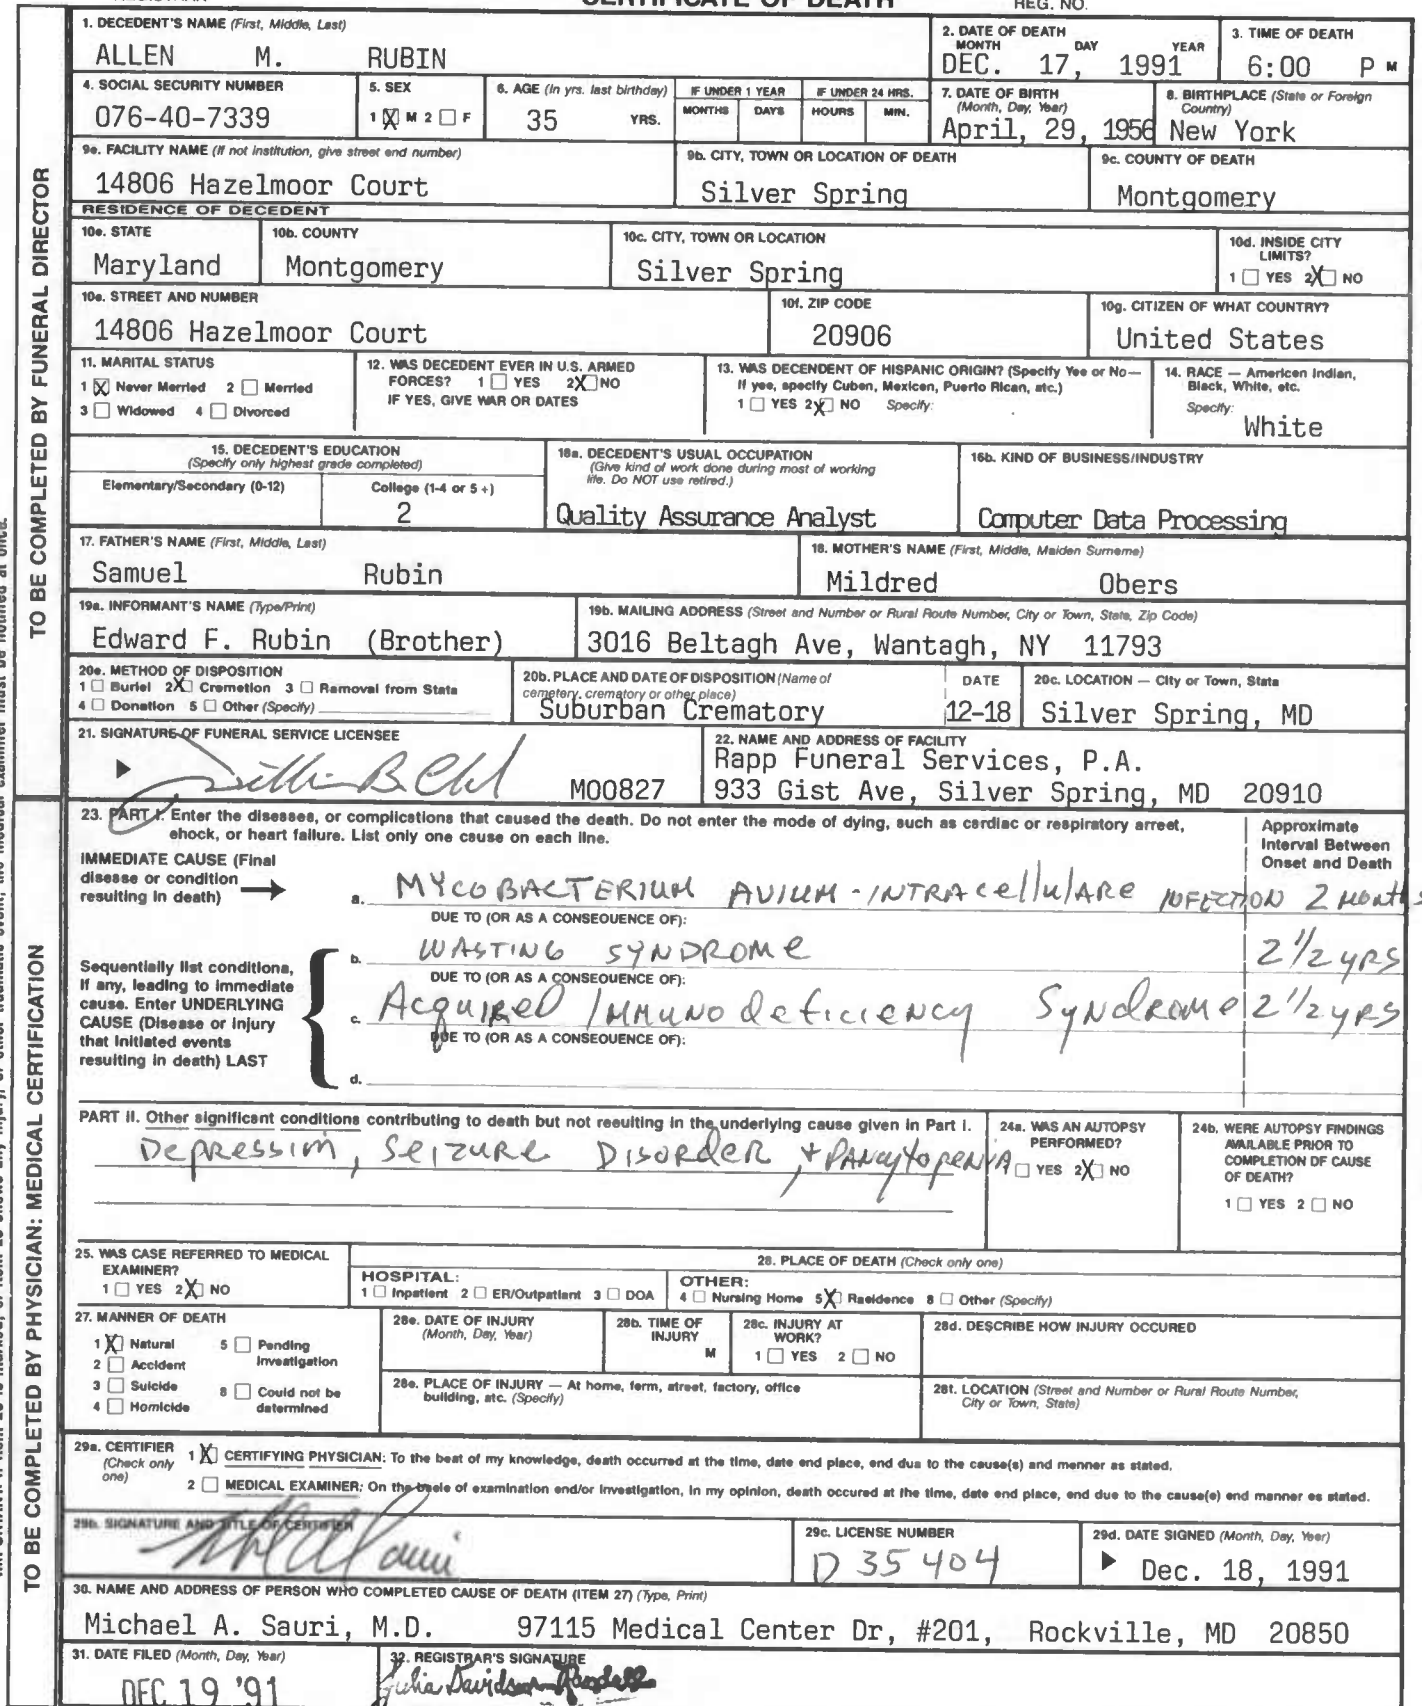 CERTIFICATE OF DEATH
REG. NO.
1. DECEDENT'S NAME (First, Middle, Last)
ALLEN M. RUBIN
2. DATE OF DEATH
MONTH DAY YEAR
DEC. 17, 1991
3. TIME OF DEATH
6:00 P M
4. SOCIAL SECURITY NUMBER
076-40-7339
5. SEX
1 ☒ M 2 ☐ F
6. AGE (In yrs. last birthday)
35 YRS.
IF UNDER 1 YEAR
MONTHS DAYS
IF UNDER 24 HRS.
HOURS MIN.
7. DATE OF BIRTH
(Month, Day, Year)
April, 29, 1956
8. BIRTHPLACE (State or Foreign
Country)
New York
9a. FACILITY NAME (If not institution, give street and number)
14806 Hazelmoor Court
9b. CITY, TOWN OR LOCATION OF DEATH
Silver Spring
9c. COUNTY OF DEATH
Montgomery
RESIDENCE OF DECEDENT
10a. STATE
Maryland
10b. COUNTY
Montgomery
10c. CITY, TOWN OR LOCATION
Silver Spring
10d. INSIDE CITY
LIMITS?
1 ☐ YES 2 ☒ NO
10e. STREET AND NUMBER
14806 Hazelmoor Court
10f. ZIP CODE
20906
10g. CITIZEN OF WHAT COUNTRY?
United States
11. MARITAL STATUS
1 ☒ Never Married 2 ☐ Married
3 ☐ Widowed 4 ☐ Divorced
12. WAS DECEDENT EVER IN U.S. ARMED
FORCES? 1 ☐ YES 2 ☒ NO
IF YES, GIVE WAR OR DATES
13. WAS DECENDENT OF HISPANIC ORIGIN? (Specify Yes or No—
If yes, specify Cuban, Mexican, Puerto Rican, etc.)
1 ☐ YES 2 ☒ NO Specify:
14. RACE — American Indian,
Black, White, etc.
Specify:
White
15. DECEDENT'S EDUCATION
(Specify only highest grade completed)
Elementary/Secondary (0-12)
College (1-4 or 5 +)
2
16a. DECEDENT'S USUAL OCCUPATION
(Give kind of work done during most of working
life. Do NOT use retired.)
Quality Assurance Analyst
16b. KIND OF BUSINESS/INDUSTRY
Computer Data Processing
17. FATHER'S NAME (First, Middle, Last)
Samuel Rubin
18. MOTHER'S NAME (First, Middle, Maiden Surname)
Mildred Obers
19a. INFORMANT'S NAME (Type/Print)
Edward F. Rubin (Brother)
19b. MAILING ADDRESS (Street and Number or Rural Route Number, City or Town, State, Zip Code)
3016 Beltagh Ave, Wantagh, NY 11793
20a. METHOD OF DISPOSITION
1 ☐ Burial 2 ☒ Cremation 3 ☐ Removal from State
4 ☐ Donation 5 ☐ Other (Specify)
20b. PLACE AND DATE OF DISPOSITION (Name of
cemetery, crematory or other place)
Suburban Crematory
DATE
12-18
20c. LOCATION — City or Town, State
Silver Spring, MD
21. SIGNATURE OF FUNERAL SERVICE LICENSEE
M00827
22. NAME AND ADDRESS OF FACILITY
Rapp Funeral Services, P.A.
933 Gist Ave, Silver Spring, MD 20910
23. PART I. Enter the diseases, or complications that caused the death. Do not enter the mode of dying, such as cardiac or respiratory arrest,
shock, or heart failure. List only one cause on each line.
Approximate
Interval Between
Onset and Death
IMMEDIATE CAUSE (Final
disease or condition
resulting in death)
a. MYCOBACTERIUM AVIUM-INTRACellulARE INFECTION 2 MONTHS
DUE TO (OR AS A CONSEQUENCE OF):
b. WASTING SYNDROMe 2 1/2 yRS
DUE TO (OR AS A CONSEQUENCE OF):
Sequentially list conditions,
if any, leading to immediate
cause. Enter UNDERLYING
CAUSE (Disease or injury
that initiated events
resulting in death) LAST
c. Acquired Immunodeficiency Syndrome 2 1/2 yRS
DUE TO (OR AS A CONSEQUENCE OF):
d.
PART II. Other significant conditions contributing to death but not resulting in the underlying cause given in Part I.
Depression, Seizure Disorder, + Pancytopenia
24a. WAS AN AUTOPSY
PERFORMED?
1 ☐ YES 2 ☒ NO
24b. WERE AUTOPSY FINDINGS
AVAILABLE PRIOR TO
COMPLETION OF CAUSE
OF DEATH?
1 ☐ YES 2 ☐ NO
25. WAS CASE REFERRED TO MEDICAL
EXAMINER?
1 ☐ YES 2 ☒ NO
26. PLACE OF DEATH (Check only one)
HOSPITAL:
1 ☐ Inpatient 2 ☐ ER/Outpatient 3 ☐ DOA
OTHER:
4 ☐ Nursing Home 5 ☒ Residence 6 ☐ Other (Specify)
27. MANNER OF DEATH
1 ☒ Natural 5 ☐ Pending
Investigation
2 ☐ Accident
3 ☐ Suicide 6 ☐ Could not be
determined
4 ☐ Homicide
28a. DATE OF INJURY
(Month, Day, Year)
28b. TIME OF
INJURY
M
28c. INJURY AT
WORK?
1 ☐ YES 2 ☐ NO
28d. DESCRIBE HOW INJURY OCCURED
28e. PLACE OF INJURY — At home, farm, street, factory, office
building, etc. (Specify)
28f. LOCATION (Street and Number or Rural Route Number,
City or Town, State)
29a. CERTIFIER
(Check only
one)
1 ☒ CERTIFYING PHYSICIAN: To the best of my knowledge, death occurred at the time, date and place, and due to the cause(s) and manner as stated.
2 ☐ MEDICAL EXAMINER: On the basis of examination and/or investigation, in my opinion, death occured at the time, date and place, and due to the cause(s) and manner as stated.
29b. SIGNATURE AND TITLE OF CERTIFIER
29c. LICENSE NUMBER
D 35404
29d. DATE SIGNED (Month, Day, Year)
Dec. 18, 1991
30. NAME AND ADDRESS OF PERSON WHO COMPLETED CAUSE OF DEATH (ITEM 27) (Type, Print)
Michael A. Sauri, M.D. 97115 Medical Center Dr, #201, Rockville, MD 20850
31. DATE FILED (Month, Day, Year)
DEC 19 '91
32. REGISTRAR'S SIGNATURE
Julia Davidson-Randall
TO BE COMPLETED BY FUNERAL DIRECTOR
TO BE COMPLETED BY PHYSICIAN: MEDICAL CERTIFICATION